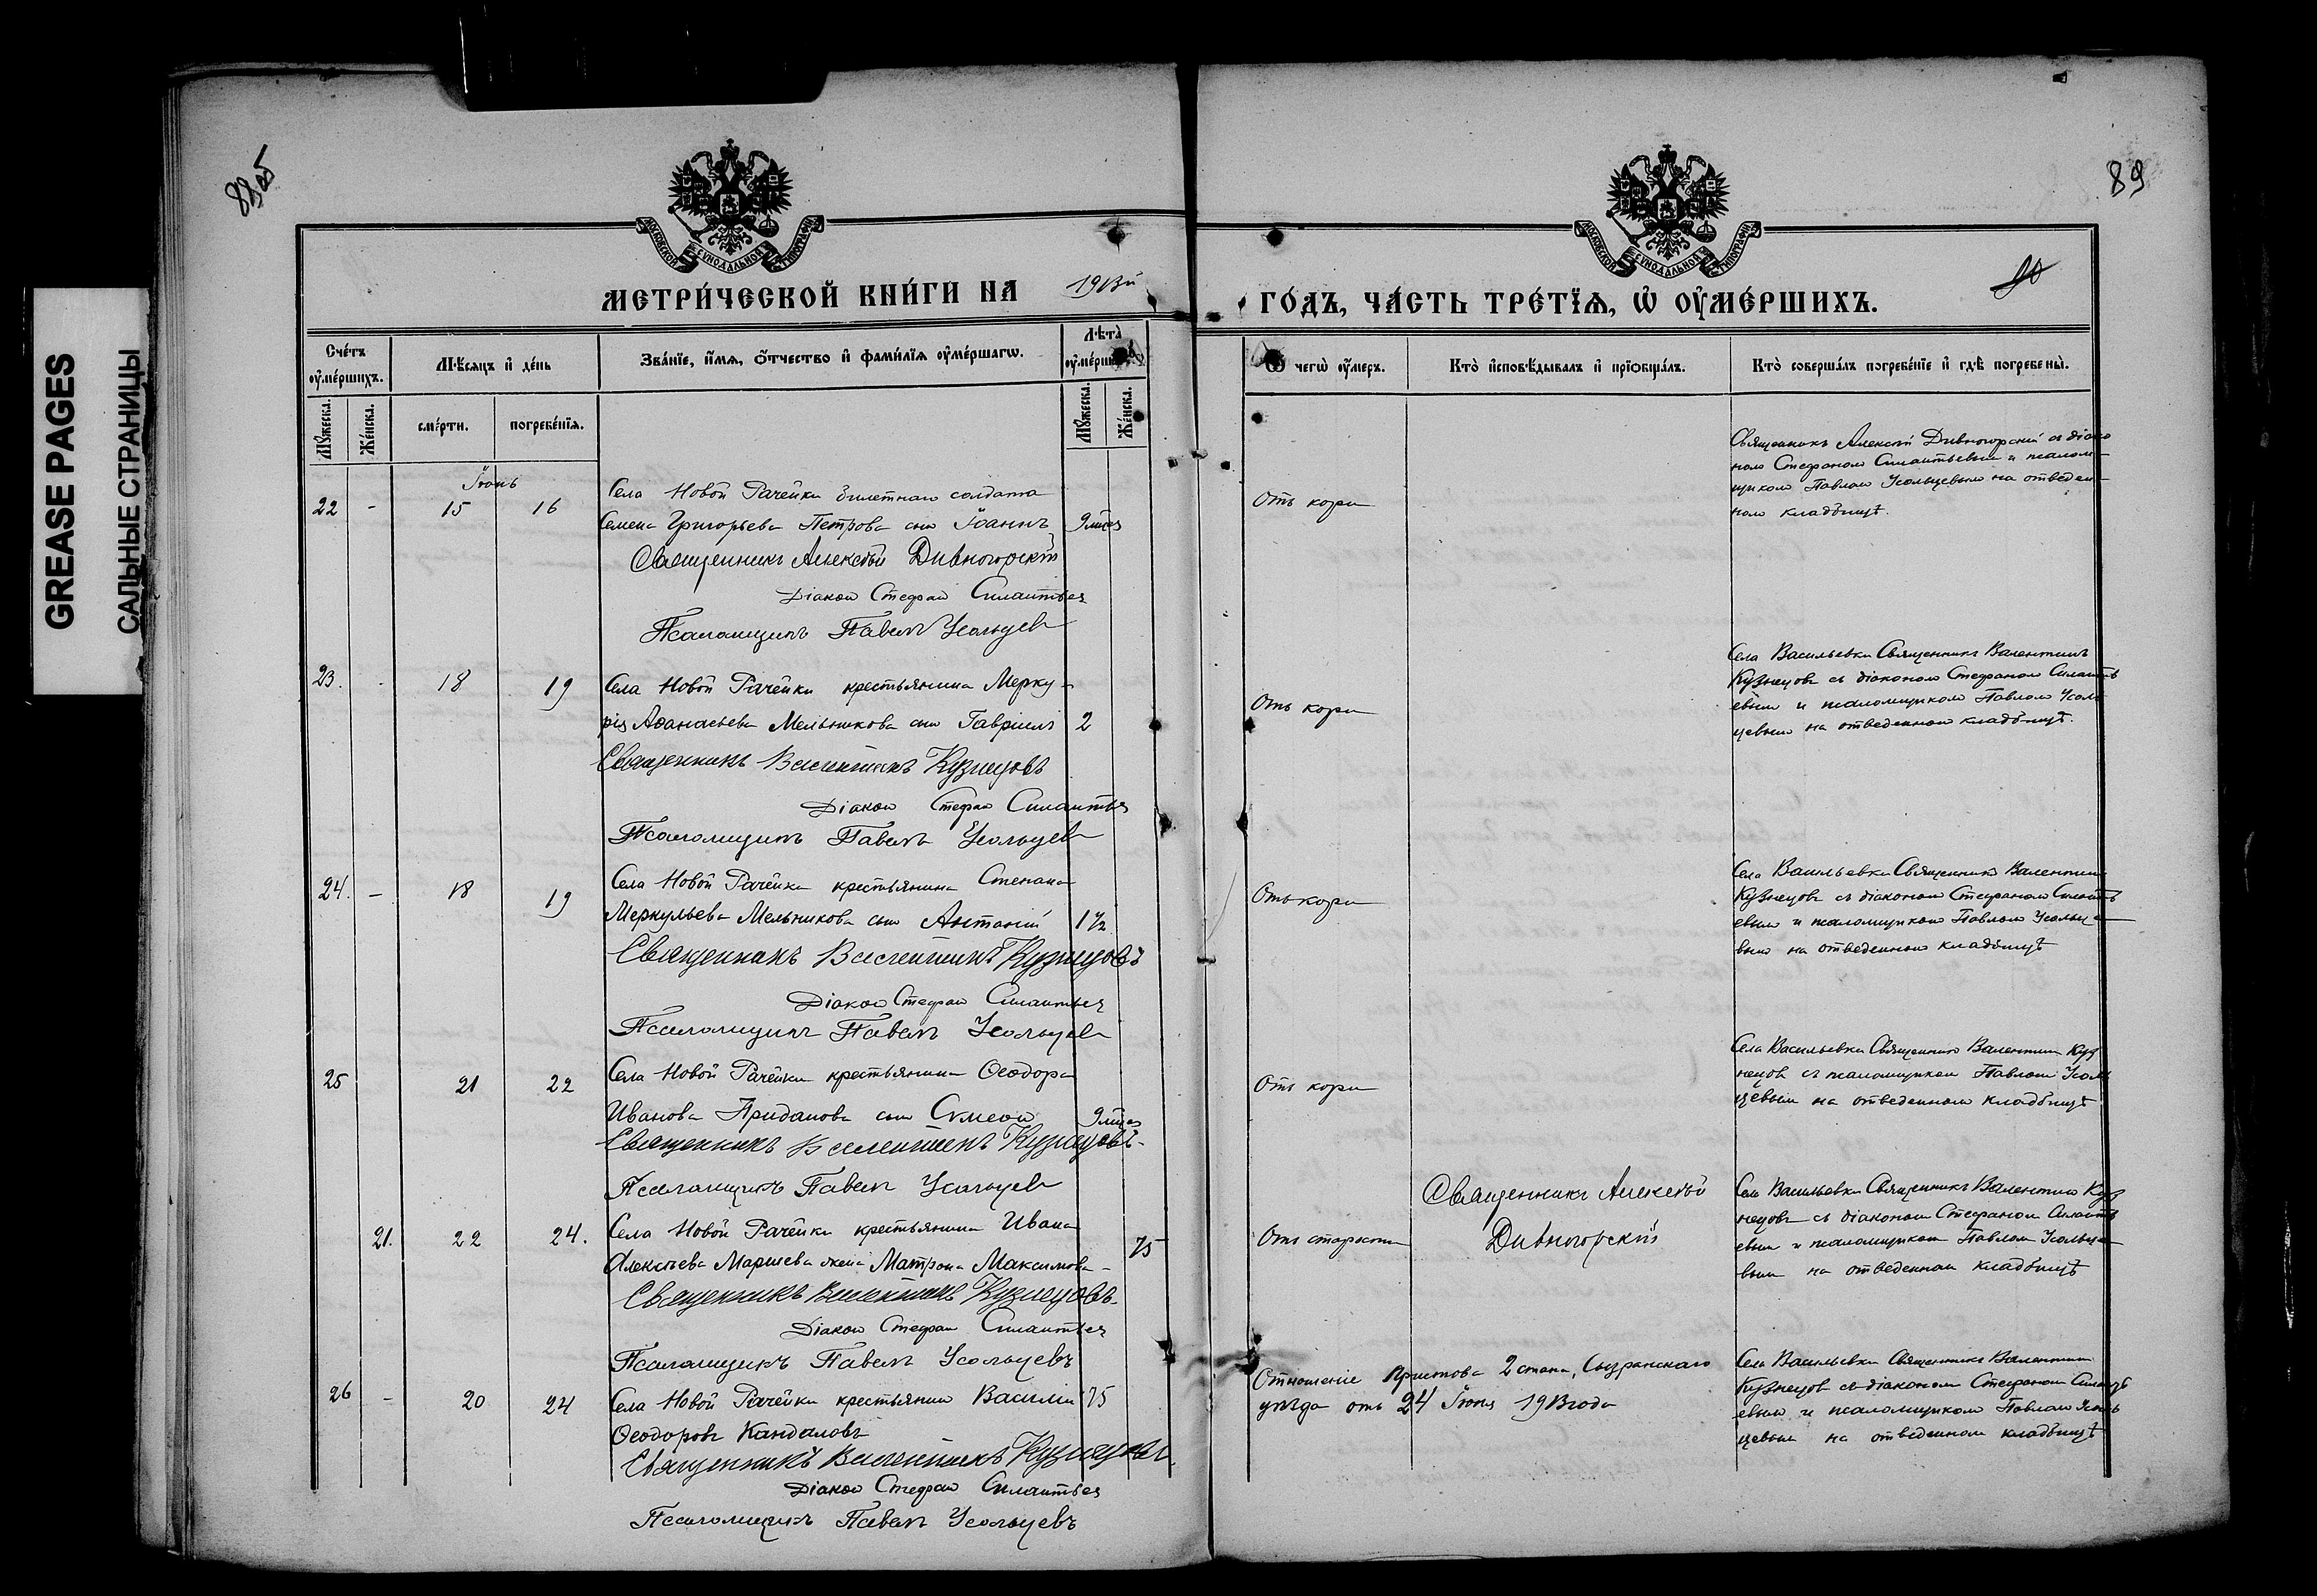 GREASE PAGES
САЛЬНЫЕ СТРАНИЦЫ
88 об
89
МОСКОВСКОЙ СѴНОДАЛЬНОЙ ТИПОГРАФІИ
МОСКОВСКОЙ СѴНОДАЛЬНОЙ ТИПОГРАФІИ
МЕТРИ́ЧЕСКОЙ КНИ́ГИ НА 1913й
ГО́ДЪ, ЧА́СТЬ ТРЕ́ТІѦ, Ѡ҆ ОУ҆МЕ́РШИХЪ.
Сче́тъ оу҆ме́ршихъ.
Мѣ́сѧцъ и҆ де́нь
Зва́нїе, и҆́мѧ, ѻ҆́тчество и҆ фами́лїѧ оу҆ме́ршагѡ.
Лѣта̀ оу҆ме́рш
Ѿ чегѡ̀ оу҆́меръ.
Кто̀ и҆сповѣ́дывалъ и҆ прїѻбща́лъ.
Кто̀ соверша́лъ погребе́нїе и҆ гдѣ̀ погребены̀.
Мꙋ́жеска.
Же́нска.
сме́рти.
погребе́нїѧ.
Мꙋ́жеска.
Же́нска.
Іюнь
22 - 15 16
Села Новой Рачейки билетнаго солдата
Семена Григорьева Петрова сын Іоаннъ 9 мѣс
Священникъ Алексѣй Дивногорскій
Діакон Стефан Силантьев
Псаломщикъ Павелъ Усольцев
Отъ кори
Священникъ Алексѣй Дивногорскій съ діако
ном Стефаном Силантьевым и псалом-
щиком Павлом Усольцевым на отведен-
ном кладбищѣ.
23. - 18 19
Села Новой Рачейки крестьянина Мерку-
рія Аѳанасьева Мельникова сын Гавріилъ 2
Священникъ Валентинъ Кузнецовъ
Діакон Стефан Силантьев
Псаломщикъ Павелъ Усольцев
Отъ кори
Села Васильевки Священникъ Валентинъ
Кузнецовъ съ діаконом Стефаном Силанть
евым и псаломщиком Павлом Усоль
цевым на отведенном кладбищѣ.
24. - 18 19
Села Новой Рачейки крестьянина Степана
Меркульева Мельникова сын Антоній 1½
Священникъ Валентинъ Кузнецовъ
Діакон Стефан Силантьев
Псаломщикъ Павелъ Усольцев
Отъ кори
Села Васильевки Священник Валентин
Кузнецовъ съ діаконом Стефаном Силанть
евым и псаломщиком Павлом Усольце-
вым на отведенном кладбищѣ
25 21 22
Села Новой Рачейки крестьянина Ѳеодора
Иванова Приданова сын Сѵмеон 9 мѣс
Священникъ Валентинъ Кузнецовъ
Псаломщикъ Павел Усольцев
Отъ кори
Села Васильевки Священник Валентин Куз
нецов съ псаломщиком Павлом Усоль
цевым на отведенном кладбищѣ
21. 22 24.
Села Новой Рачейки крестьянина Ивана
Алексѣева жена Матрона Максимова 75
Священникъ Валентинъ Кузнецовъ
Діакон Стефан Силантьев
Псаломщикъ Павелъ Усольцевъ
Отъ старости
Священникъ Алексѣй
Дивногорскій
Села Васильевки Священникъ Валентин Куз
нецовъ съ діаконом Стефаном Силанть
евым и псаломщиком Павлом Усольце-
вым на отведенном кладбищѣ
26 - 20 24
Села Новой Рачейки крестьянин Василій 75
Ѳеодоровъ Кандаловъ
Священникъ Валентинъ Кузнецовъ
Діакон Стефан Силантьев
Псаломщикъ Павелъ Усольцевъ
Отношеніе Пристава 2 стана, Сызранскаго
уѣзда отъ 24 Іюня 1913 года
Села Васильевки Священникъ Валентин
Кузнецов съ діаконом Стефаном Силанть
евым и псаломщиком Павлом Усоль
цевым на отведенном кладбищѣ